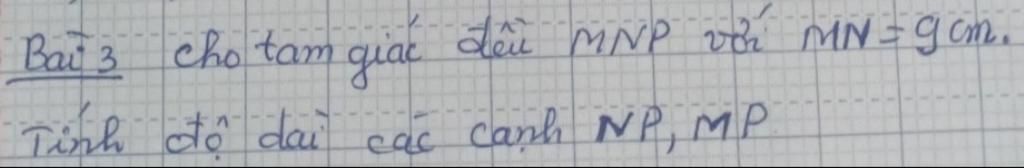 Bài 3 Cho tam giác đều MNP với MN = 9cm.
Tính độ dài các cạnh NP, MP